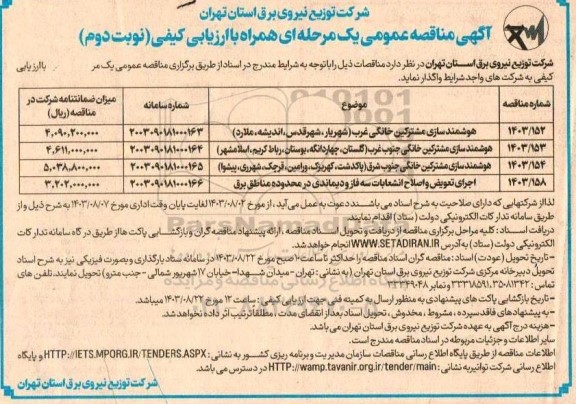 شرکت توزیع نیروی برق استان تهران
آگهی مناقصه عمومی یک مرحله ای همراه با ارزیابی کیفی (نوبت دوم)
شرکت توزیع نیروی برق استان تهران در نظر دارد مناقصات ذیل را با توجه به شرایط مندرج در اسناد از طریق برگزاری مناقصه عمومی یک مر با ارزیابی
کیفی به شرکت های واجد شرایط واگذار نماید.
شماره مناقصه موضوع شماره سامانه میزان ضمانتنامه شرکت در مناقصه (ریال)
۱۴۰۳/۱۵۲ هوشمندسازی مشترکین خانگی غرب (شهریار، شهرقدس، اندیشه، ملارد) ۲۰۰۳۰۹۰۱۸۱۰۰۰۱۶۳ ۴,۰۹۰,۲۰۰,۰۰۰
۱۴۰۳/۱۵۳ هوشمندسازی مشترکین خانگی جنوب غرب (گلستان، چهاردانگه، بوستان، رباط کریم، اسلامشهر) ۲۰۰۳۰۹۰۱۸۱۰۰۰۱۶۴ ۴,۶۱۱,۰۰۰,۰۰۰
۱۴۰۳/۱۵۴ هوشمندسازی مشترکین خانگی جنوب شرق (پاکدشت، کهریزک، ورامین، قرچک، شهرری، پیشوا) ۲۰۰۳۰۹۰۱۸۱۰۰۰۱۶۵ ۵,۰۳۸,۸۰۰,۰۰۰
۱۴۰۳/۱۵۸ اجرای تعویض و اصلاح انشعابات سه فاز و دیماندی در محدوده مناطق برق ۲۰۰۳۰۹۰۱۸۱۰۰۰۱۶۶ ۳,۲۰۲,۰۰۰,۰۰۰
لذا از شرکتهایی که دارای صلاحیت به شرح اسناد می باشند دعوت به عمل می آید، از مورخ ۱۴۰۳/۰۸/۰۲ لغایت پایان وقت اداری مورخ ۱۴۰۳/۰۸/۰۷ به شرح ذیل و از
طریق سامانه تدارکات الکترونیکی دولت (ستاد) اقدام نمایند.
دریافت اسناد: کلیه مراحل برگزاری مناقصه از دریافت و تحویل اسناد مناقصه، ارائه پیشنهاد مناقصه گران و بازگشایی پاکت ها از طریق درگاه سامانه تدارکات
الکترونیکی دولت (ستاد) به آدرس WWW.SETADIRAN.IR انجام خواهد شد.
- تاریخ تحویل (عودت) اسناد: مناقصه گران اسناد مناقصه را حداکثر تا ساعت ۱۰ صبح مورخ ۱۴۰۳/۰۸/۲۲ در سامانه ستاد بارگذاری و بصورت فیزیکی نیز به شرح اسناد
تحویل دبیرخانه مرکزی شرکت توزیع نیروی برق استان تهران (به نشانی: تهران - میدان شهدا - خیابان ۱۷ شهریور شمالی - جنب مترو) تحویل نمایند. تلفن های
تماس: ۳۵۰۸۱۳۴۲ و ۳۳۳۱۸۵۹۱ و نمابر ۳۳۳۴۹۰۴۸
- تاریخ بازگشایی پاکت های پیشنهادی به منظور ارسال به کمیته فنی جهت ارزیابی کیفی: ساعت ۱۲ مورخ ۱۴۰۳/۰۸/۲۲ میباشد.
- به پیشنهادهای فاقد سپرده، مشروط، مخدوش، تحویل اسناد بعد از انقضای مدت، مطلقا ترتیب اثر داده نخواهد شد.
- هزینه درج آگهی به عهده شرکت توزیع نیروی برق استان تهران می باشد.
سایر اطلاعات و جزئیات مربوطه در اسناد مناقصه مندرج است.
اطلاعات مناقصه از طریق پایگاه اطلاع رسانی مناقصات سازمان مدیریت و برنامه ریزی کشور به نشانی: HTTP://IETS.MPORG.IR/TENDERS.ASPX و پایگاه
اطلاع رسانی شرکت توانیر به نشانی: HTTP://wamp.tavanir.org.ir/tender/main در دسترس می باشد.
شرکت توزیع نیروی برق استان تهران